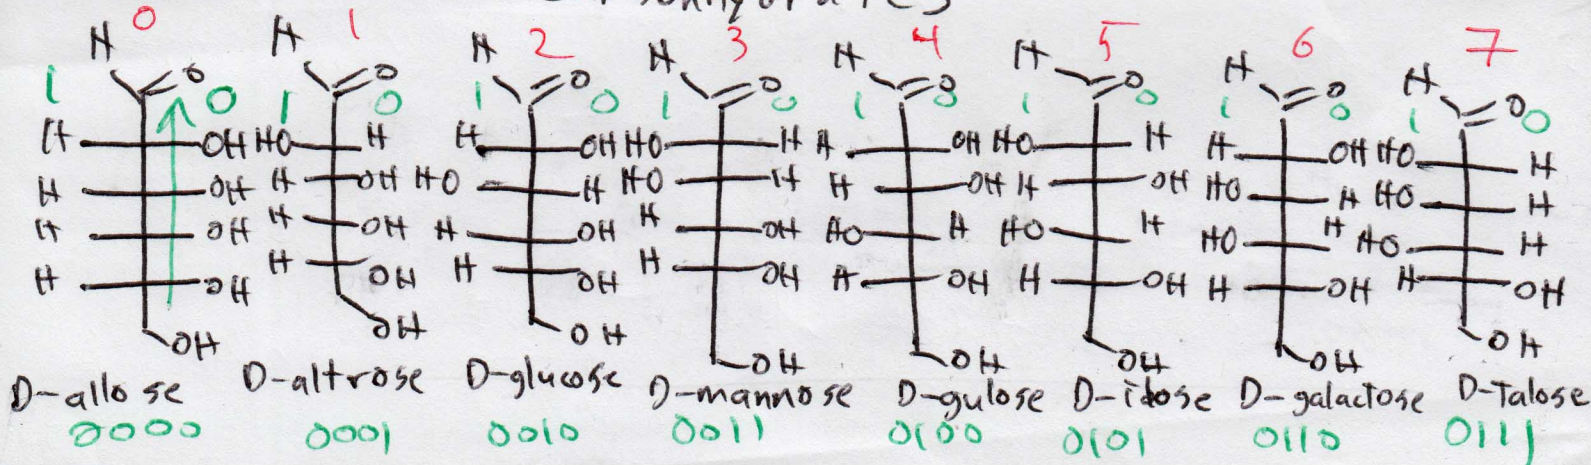 H 0 H 1 H 2 H 3 H 4 H 5 H 6 H 7
1 O 0 1 O 0 1 O 0 1 O 0 1 O 0 1 O 0 1 O 0 1 O 0
H OH HO H H OH HO H H OH HO H H OH HO H
H OH H OH HO H HO H H OH H OH HO H HO H
H OH H OH H OH H OH HO H HO H HO H HO H
H OH H OH H OH H OH H OH H OH H OH H OH
OH OH OH OH OH OH OH OH
D-allose D-altrose D-glucose D-mannose D-gulose D-idose D-galactose D-Talose
0000 0001 0010 0011 0100 0101 0110 0111